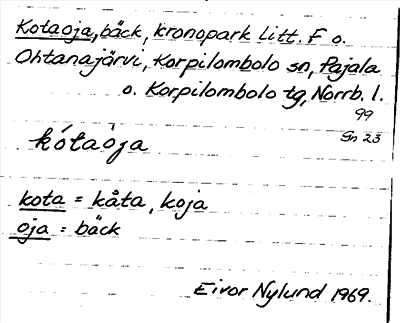 Kotaoja, bäck, kronopark litt. F o.
Ohtanajärvi, Korpilombolo sn, Pajala
o. Korpilombolo tg, Norrb. l.
99
Gn 23
kótaòja
kota = kåta, koja
oja = bäck
Eivor Nylund 1969.